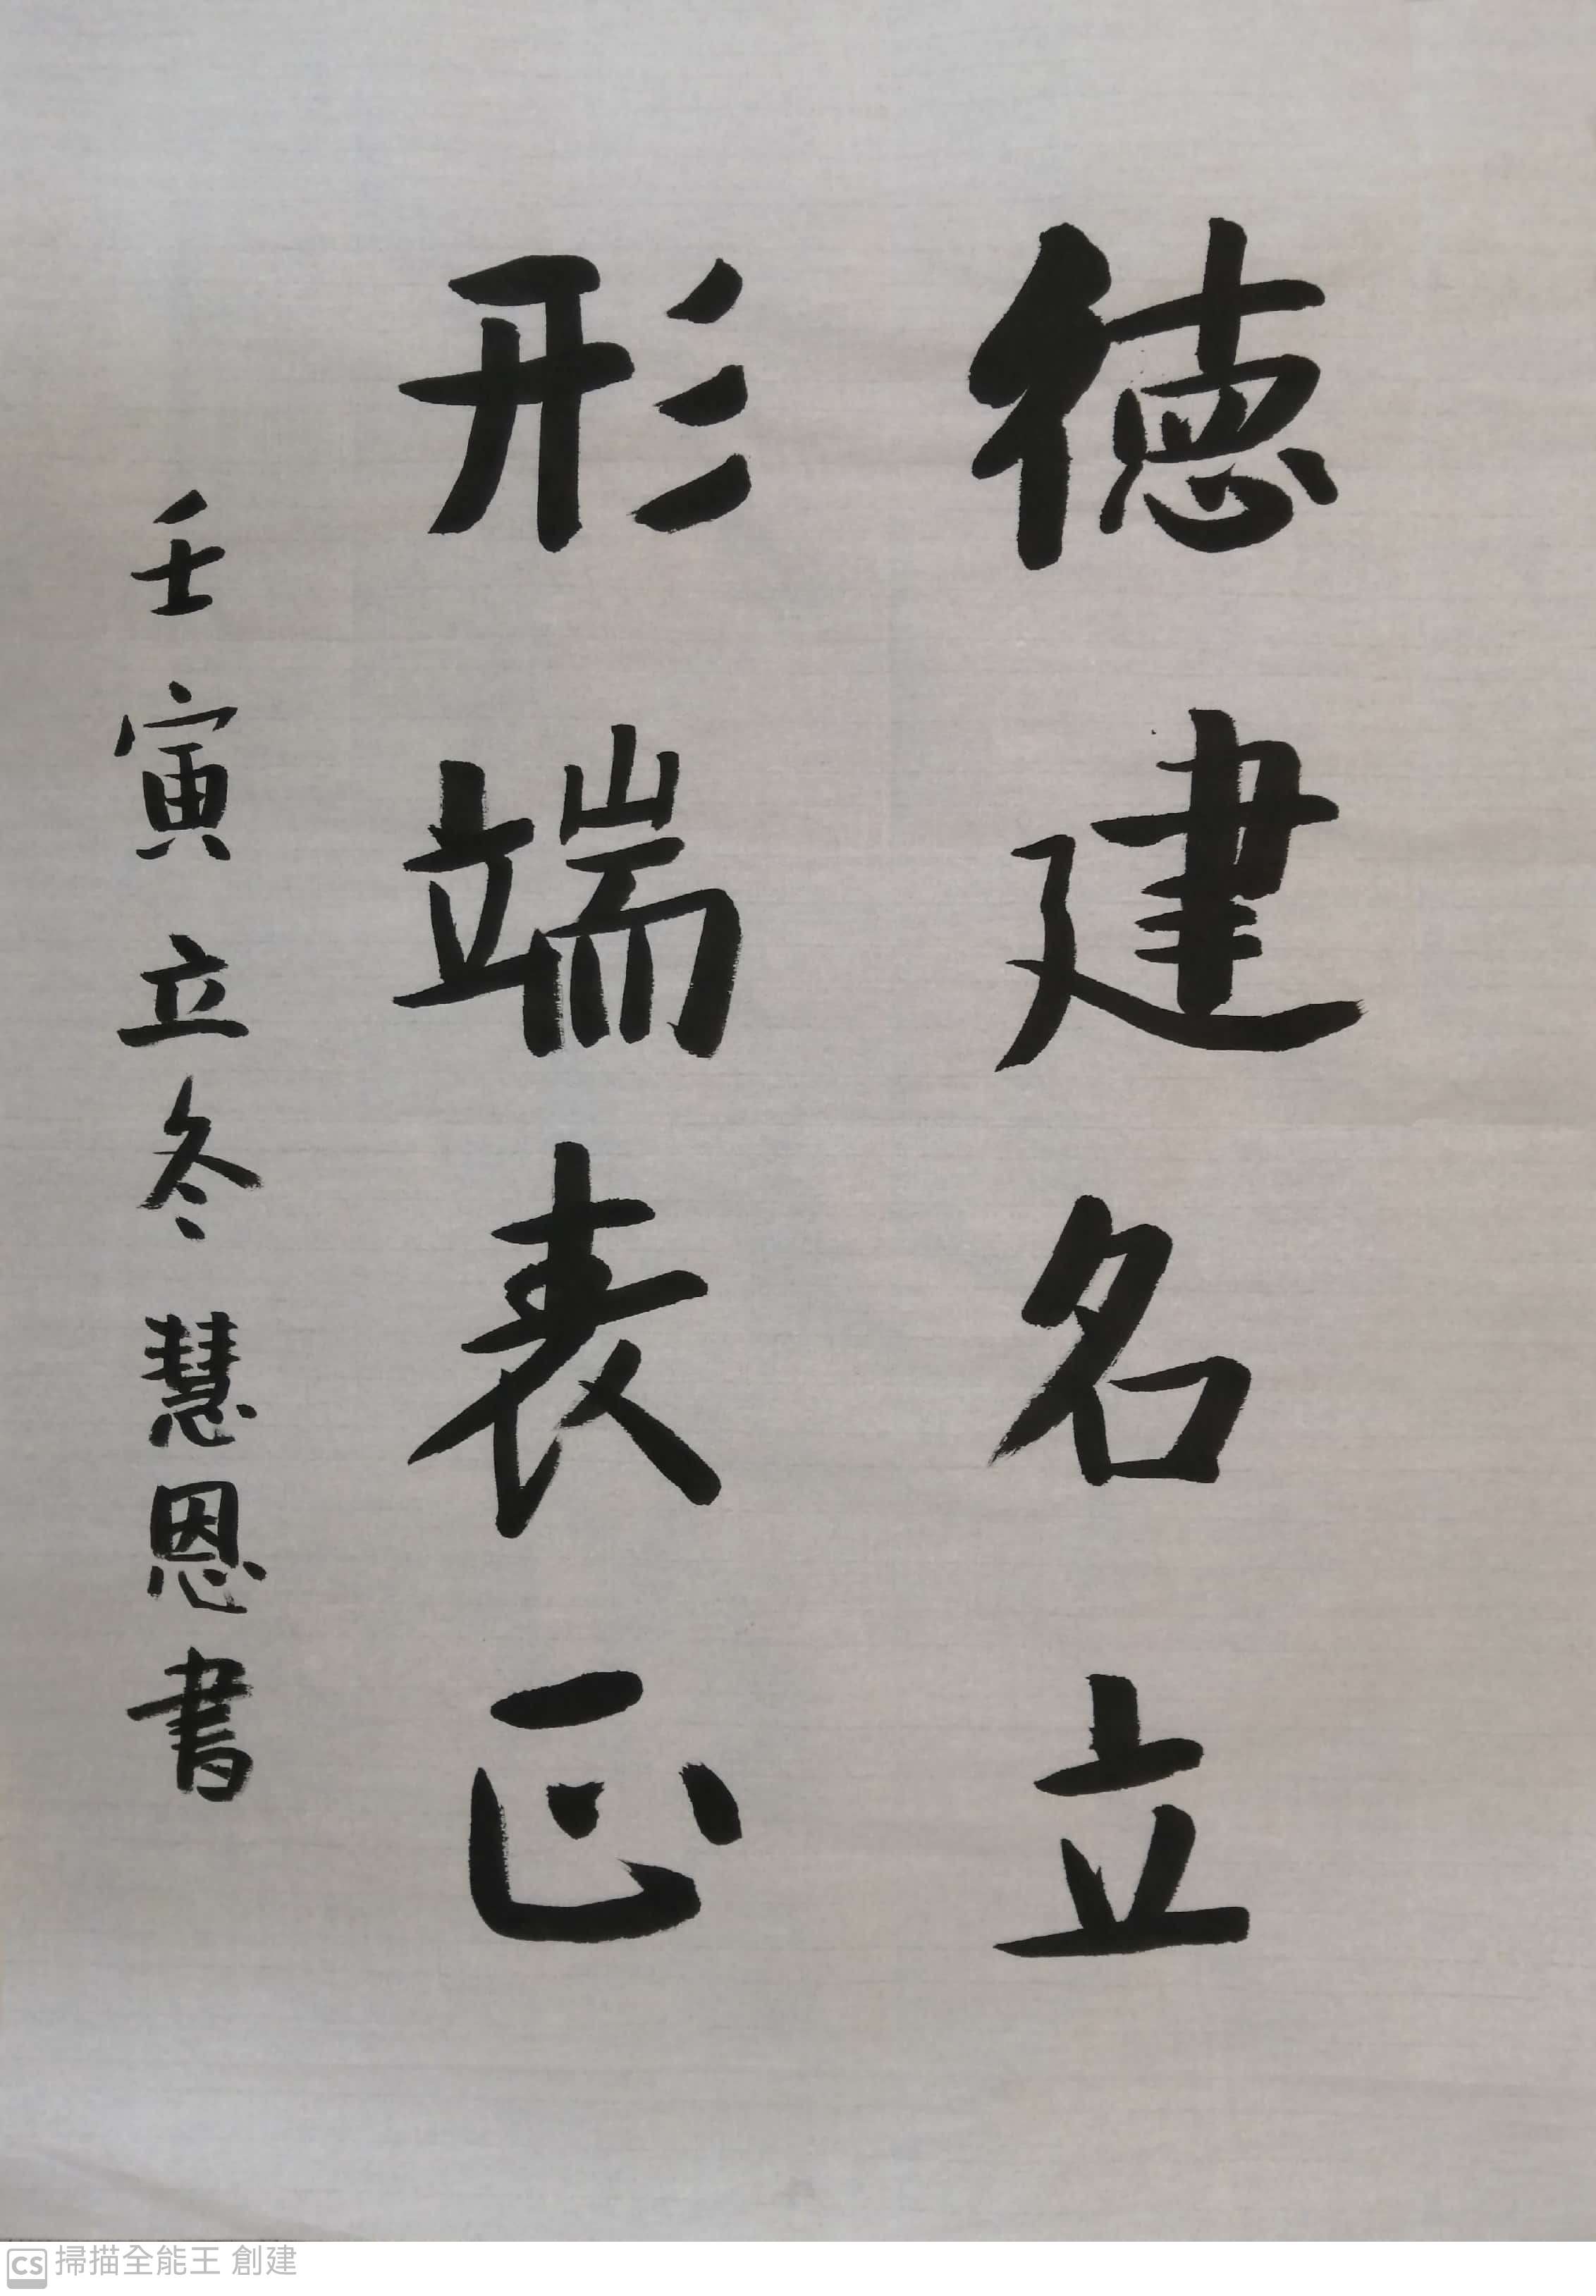 德建名立
形端表正
壬寅立冬慧恩書
CS 掃描全能王 創建